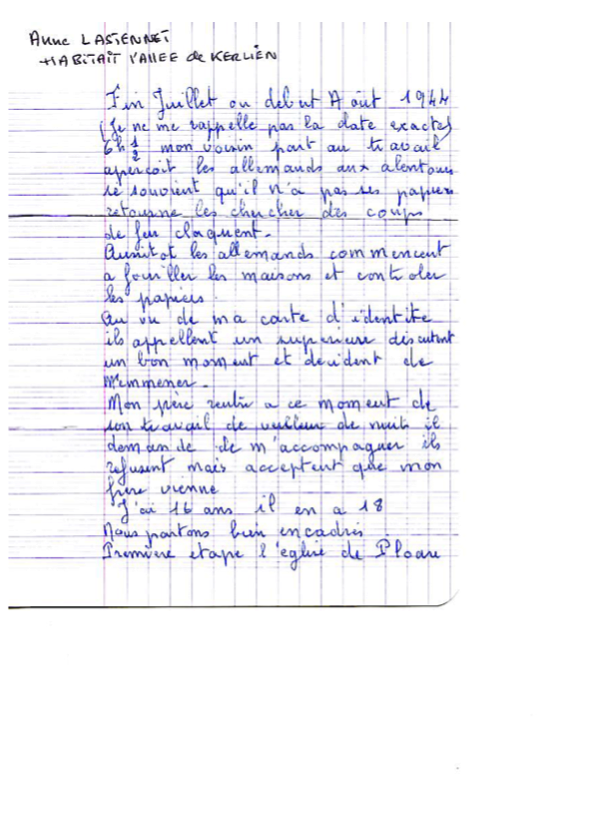 Anne LASTENNET
HABITAIT VALLEE de KERLIEN
Fin Juillet ou debut Août 1944
(Je ne me rappelle pas la date exacte)
6h 1/2 mon voisin part au travail
aperçoit les allemands aux alentours
se souvient qu'il n'a pas ses papiers
retourne les chercher des coups
de feu claquent.
Aussitot les allemands commencent
a fouiller les maisons et controler
les papiers.
Au vu de ma carte d'identite
ils appellent un superieur discutent
un bon moment et decident de
m'emmener.
Mon père rentre a ce moment de
son travail de veilleur de nuit il
demande de m'accompagner ils
refusent mais acceptent que mon
frère vienne
J'ai 16 ans il en a 18
Nous partons bien encadrés
Première etape l'eglise de Ploare